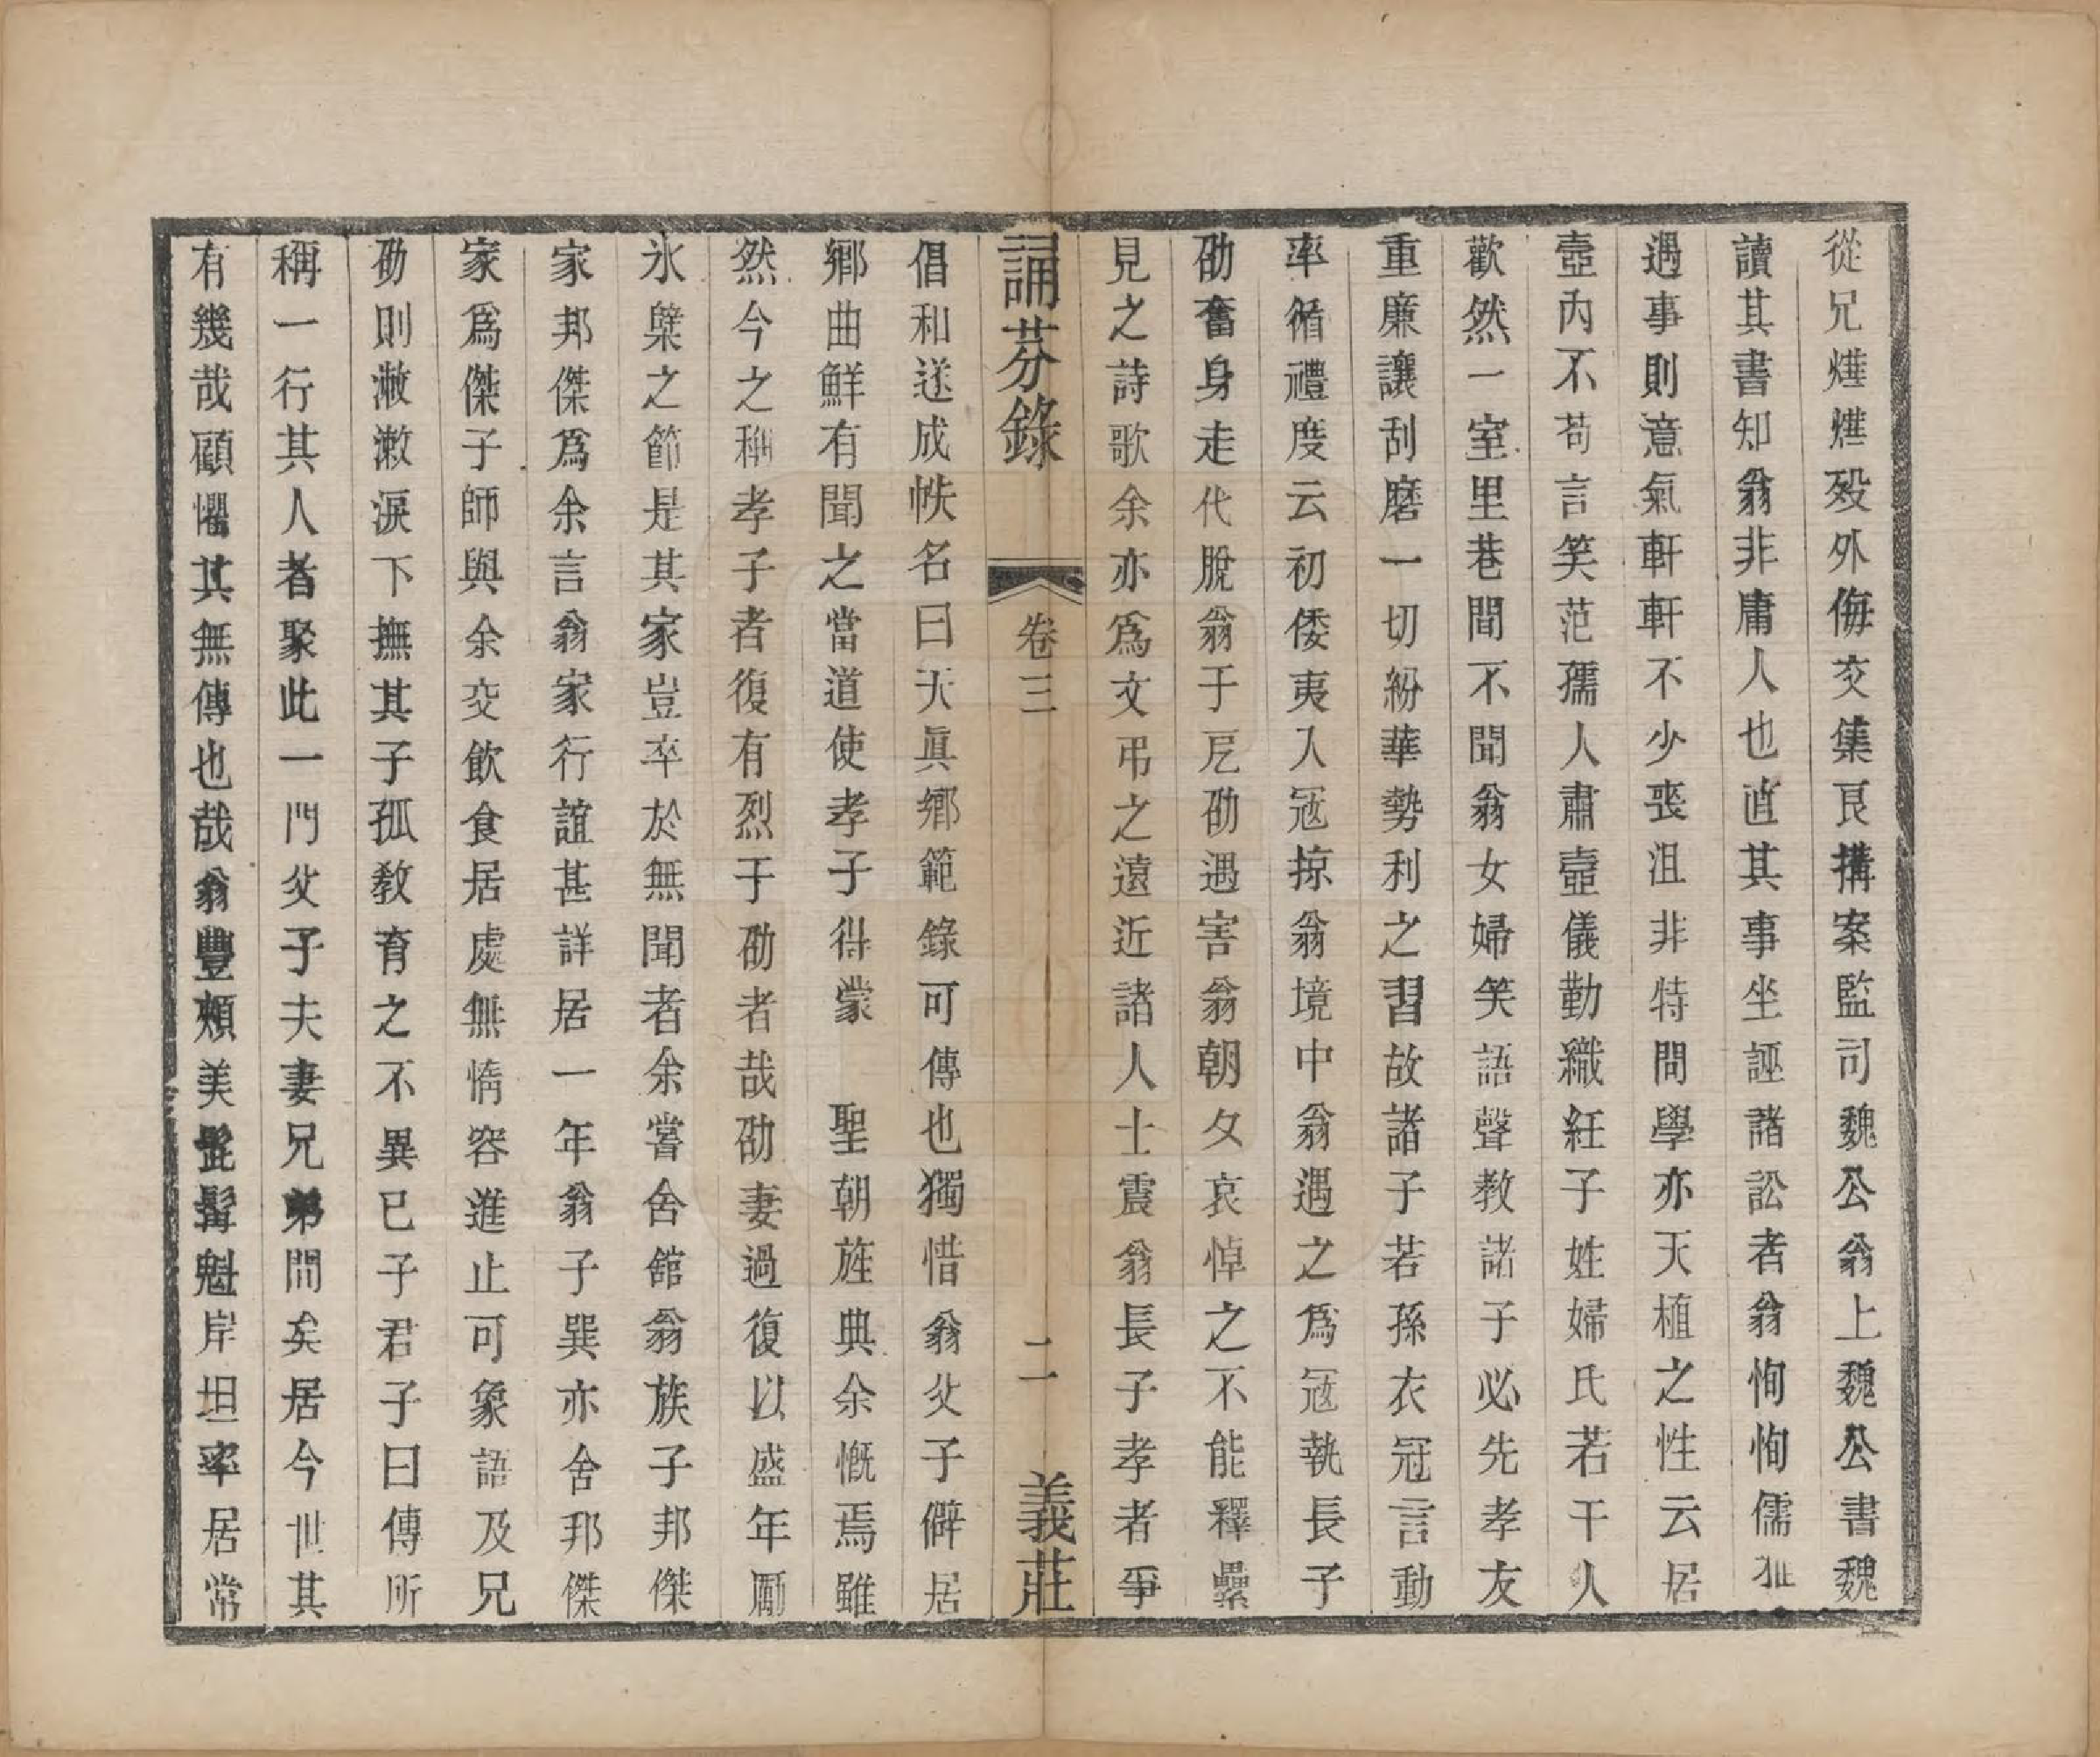 從兄爗爗歿外侮交集艮搆案監司魏公翁上魏公書魏
讀其書知翁非庸人也直其事坐誣諸訟者翁恂恂儒雅
遇事則意氣軒軒不少喪沮非特問學亦天植之性云居
壼內不苟言笑范孺人肅壼儀勤織紝子姓婦氏若干人
歡然一室里巷間不聞翁女婦笑語聲教諸子必先孝友
重廉讓刮磨一切紛華勢利之習故諸子若孫衣冠言動
率循禮度云初倭夷入冦掠翁境中翁遇之爲冦執長子
劭奮身走代脫翁于戹劭遇害翁朝夕哀悼之不能釋纍
見之詩歌余亦爲文弔之遠近諸人士震翁長子孝者爭
誦芬錄 卷三 二 義莊
倡和送成帙名曰天眞鄉範錄可傳也獨惜翁父子僻居
鄉曲鮮有聞之當道使孝子得蒙 聖朝旌典余慨焉雖
然今之稱孝子者復有烈于劭者哉劭妻過復以盛年勵
氷櫱之節是其家豈卒於無聞者余嘗舍舘翁族子邦傑
家邦傑爲余言翁家行誼甚詳居一年翁子巽亦舍邦傑
家爲傑子師與余交飲食居處無惰容進止可象語及兄
劭則潎潎淚下撫其子孤敎育之不異已子君子曰傳所
稱一行其人者聚此一門父子夫妻兄弟間矣居今世其
有幾哉顧懼其無傳也哉翁豐頰美髭髯魁岸坦率居常